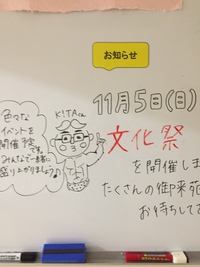 お知らせ
11月5日(日)
文化祭
を開催しま
たくさんの御来苑
お待ちして
KITAくん
色々な
イベントを
開催予定
です。
みんなで一緒に
盛り上がりましょう♪